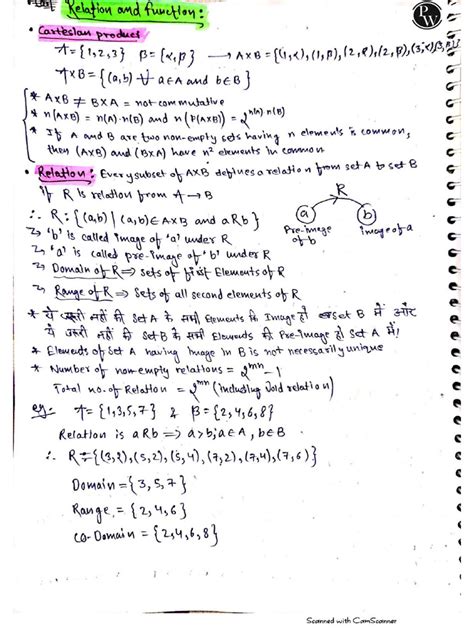 Relation and function:
PW
• Cartesian product
A = {1,2,3} B = {α,β} → A×B = {(1,α),(1,β),(2,α),(2,β),(3,α)(3,β)}
A×B = {(a,b) ∀ a∈A and b∈B}
* A×B ≠ B×A = not commutative
* n(A×B) = n(A)·n(B) and n(P(A×B)) = 2^n(A)·n(B)
* If A and B are two non-empty sets having n elements is common,
then (A×B) and (B×A) have n² elements in common
• Relation: Every subset of A×B defines a relation from set A to set B
if R is relation from A → B
∴ R : {(a,b) | (a,b) ∈ A×B and aRb}
R
a b
Pre-image of b
image of a
↳ 'b' is called image of 'a' under R
↳ 'a' is called pre-image of 'b' under R
↳ Domain of R ⇒ Sets of first Elements of R
↳ Range of R ⇒ Sets of all second elements of R
* ये जरूरी नहीं की Set A के सभी Elements कि Image हो Set B में और
ये जरूरी नहीं की Set B के सभी Elements की Pre-Image हो Set A में!
* Elements of Set A having image in B is not necessarily unique
* Number of non-empty relations = 2^mn - 1
Total no. of Relation = 2^mn (including void relation)
eg:- A = {1,3,5,7} & B = {2,4,6,8}
Relation is aRb ⇒ a>b; a∈A, b∈B
∴ R = {(3,2),(5,2),(5,4),(7,2),(7,4),(7,6)}
Domain = {3,5,7}
Range = {2,4,6}
co-Domain = {2,4,6,8}
Scanned with CamScanner